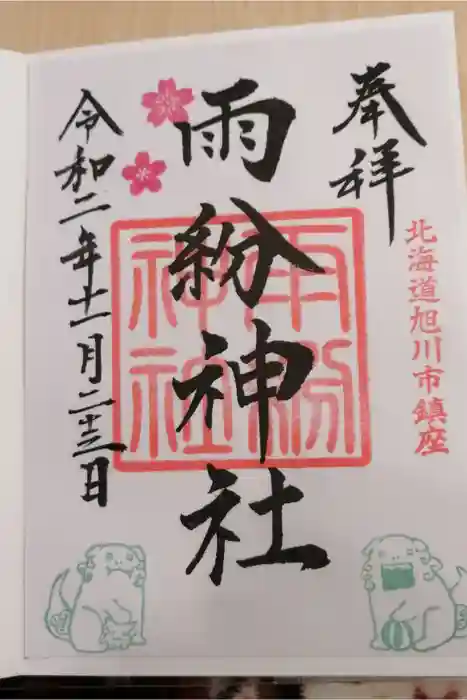 奉拝
北海道旭川市鎮座
雨紛神社
雨紛神社
令和二年十一月二十三日